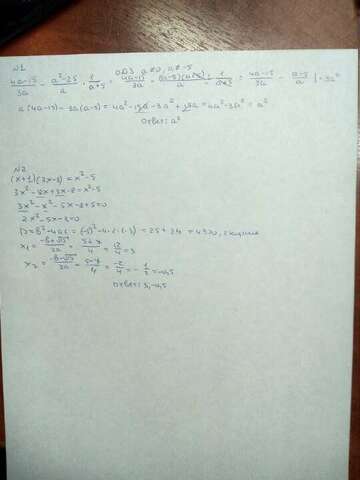 N1 ОДЗ a≠0, a≠-5
(4a-15)/3a - (a²-25)/a · 1/(a+5) = (4a-15)/3a - (a-5)(a+5)/a · 1/(a+5) = (4a-15)/3a - (a-5)/a | ·3a²
a(4a-15)-3a(a-5)=4a²-15a-3a²+15a=4a²-3a²=a²
Ответ: a²
N2
(x+1)(3x-8)=x²-5
3x²-8x+3x-8=x²-5
3x²-x²-5x-8+5=0
2x²-5x-3=0
D=b²-4ac=(-5)²-4·2·(-3)=25+24=49>0, 2 корня
x₁=(-b+√D)/2a=(5+7)/4=12/4=3
x₂=(-b-√D)/2a=(5-7)/4=-2/4=-1/2=-0,5
Ответ: 3;-0,5